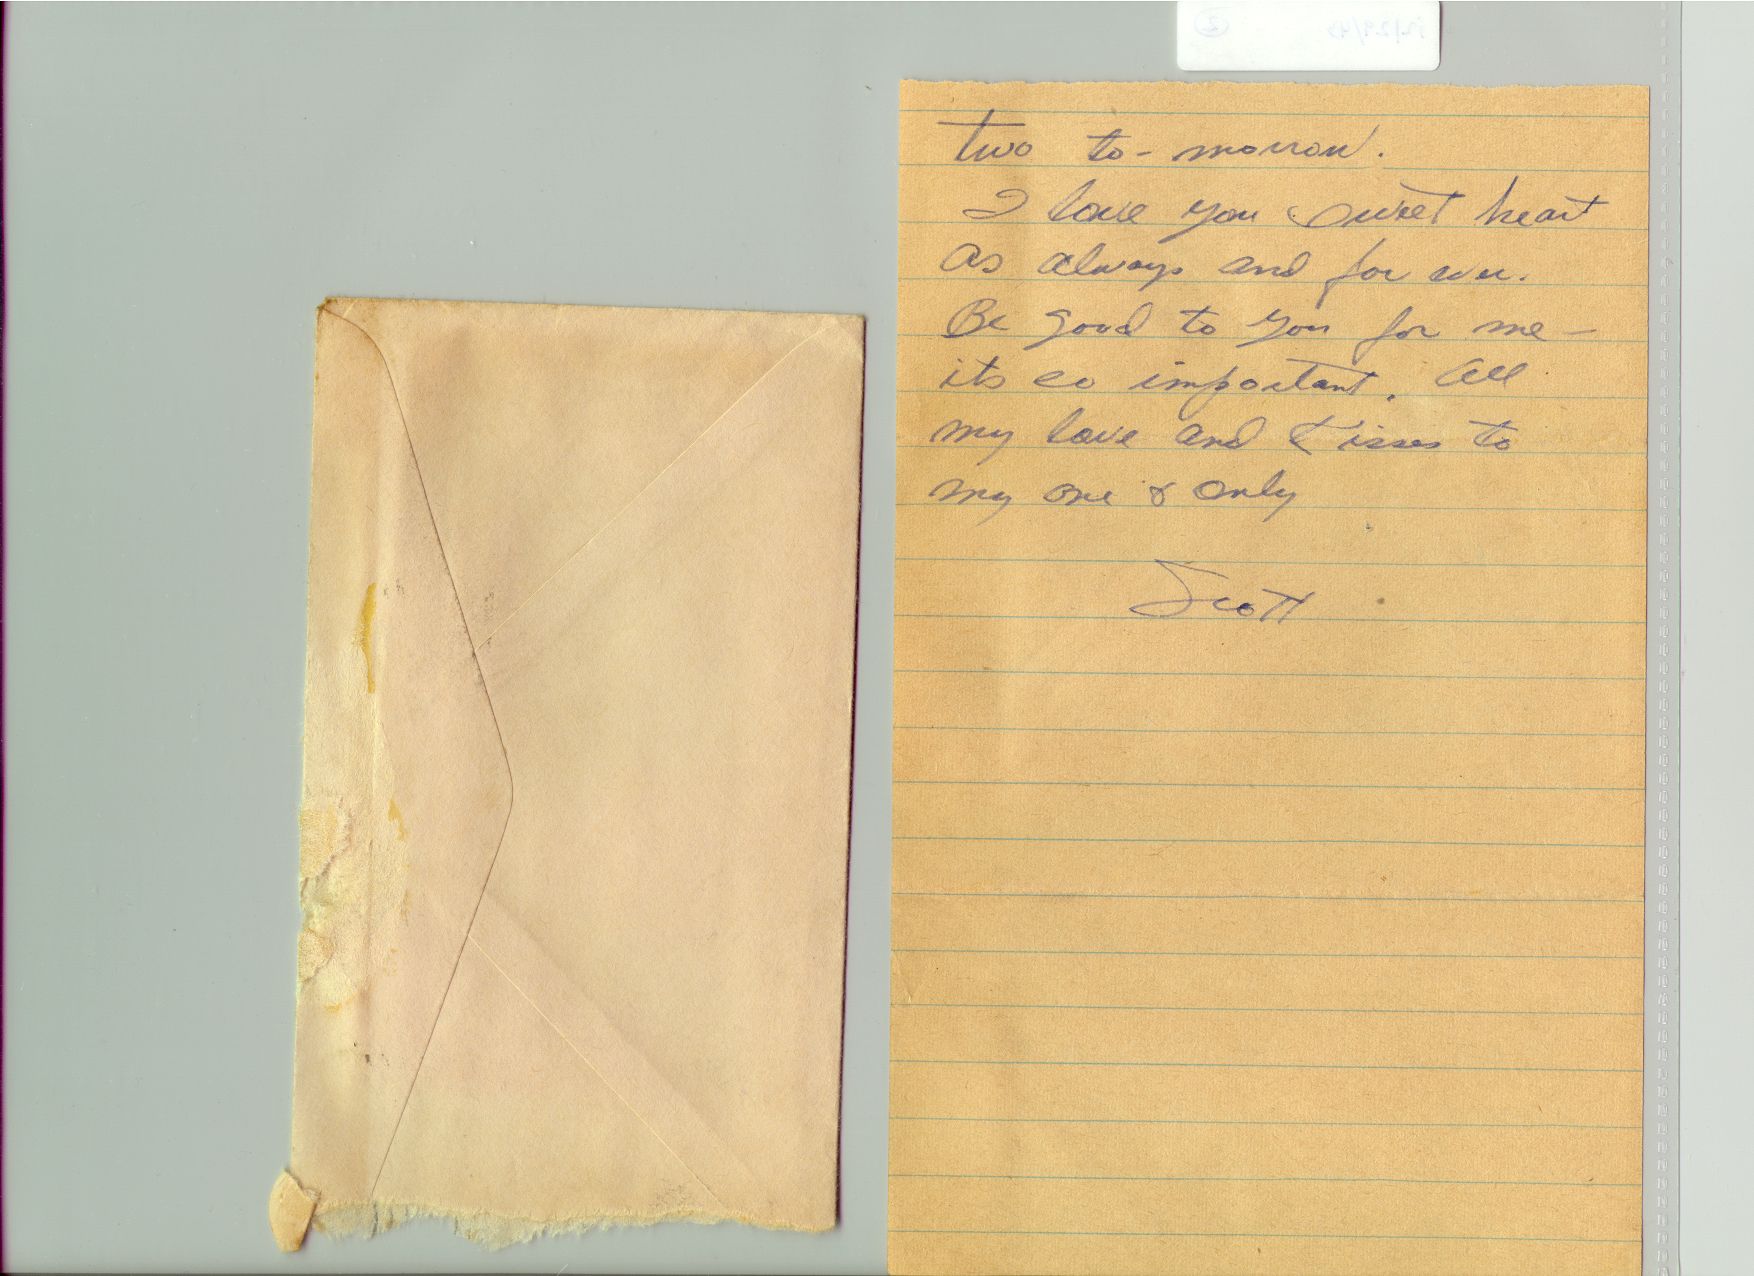 two to-morrow.
I love you sweet heart
as always and for ever.
Be good to you for me –
its so important. All
my love and kisses to
my one & only
Scott